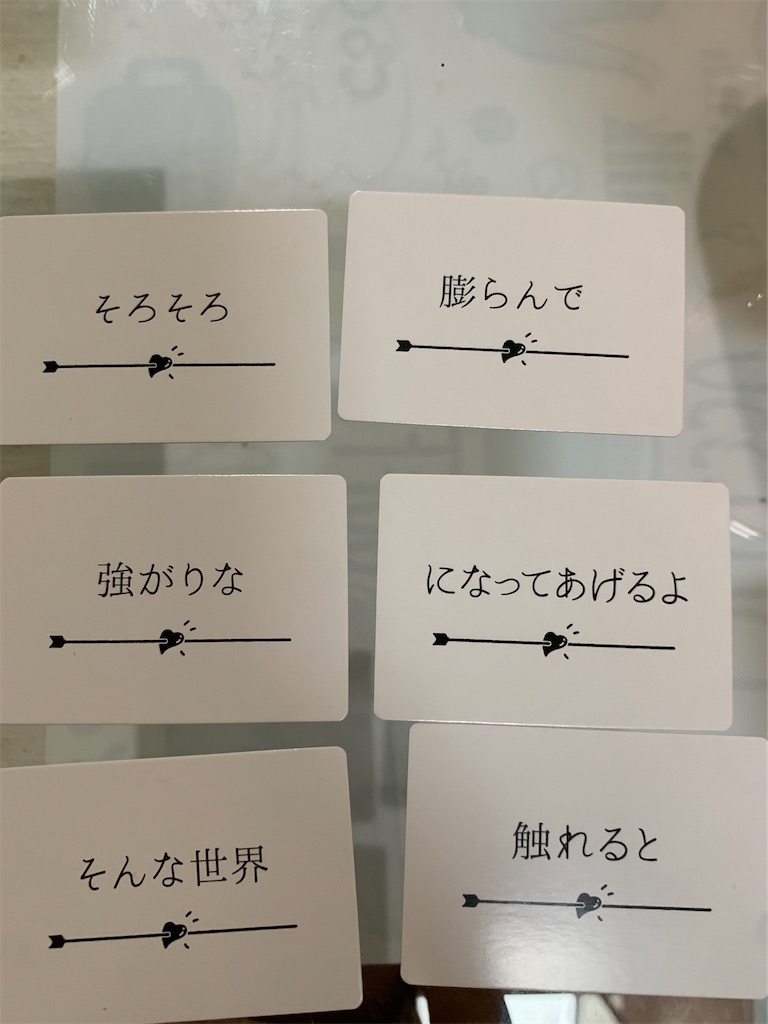 そろそろ
膨らんで
強がりな
になってあげるよ
そんな世界
触れると